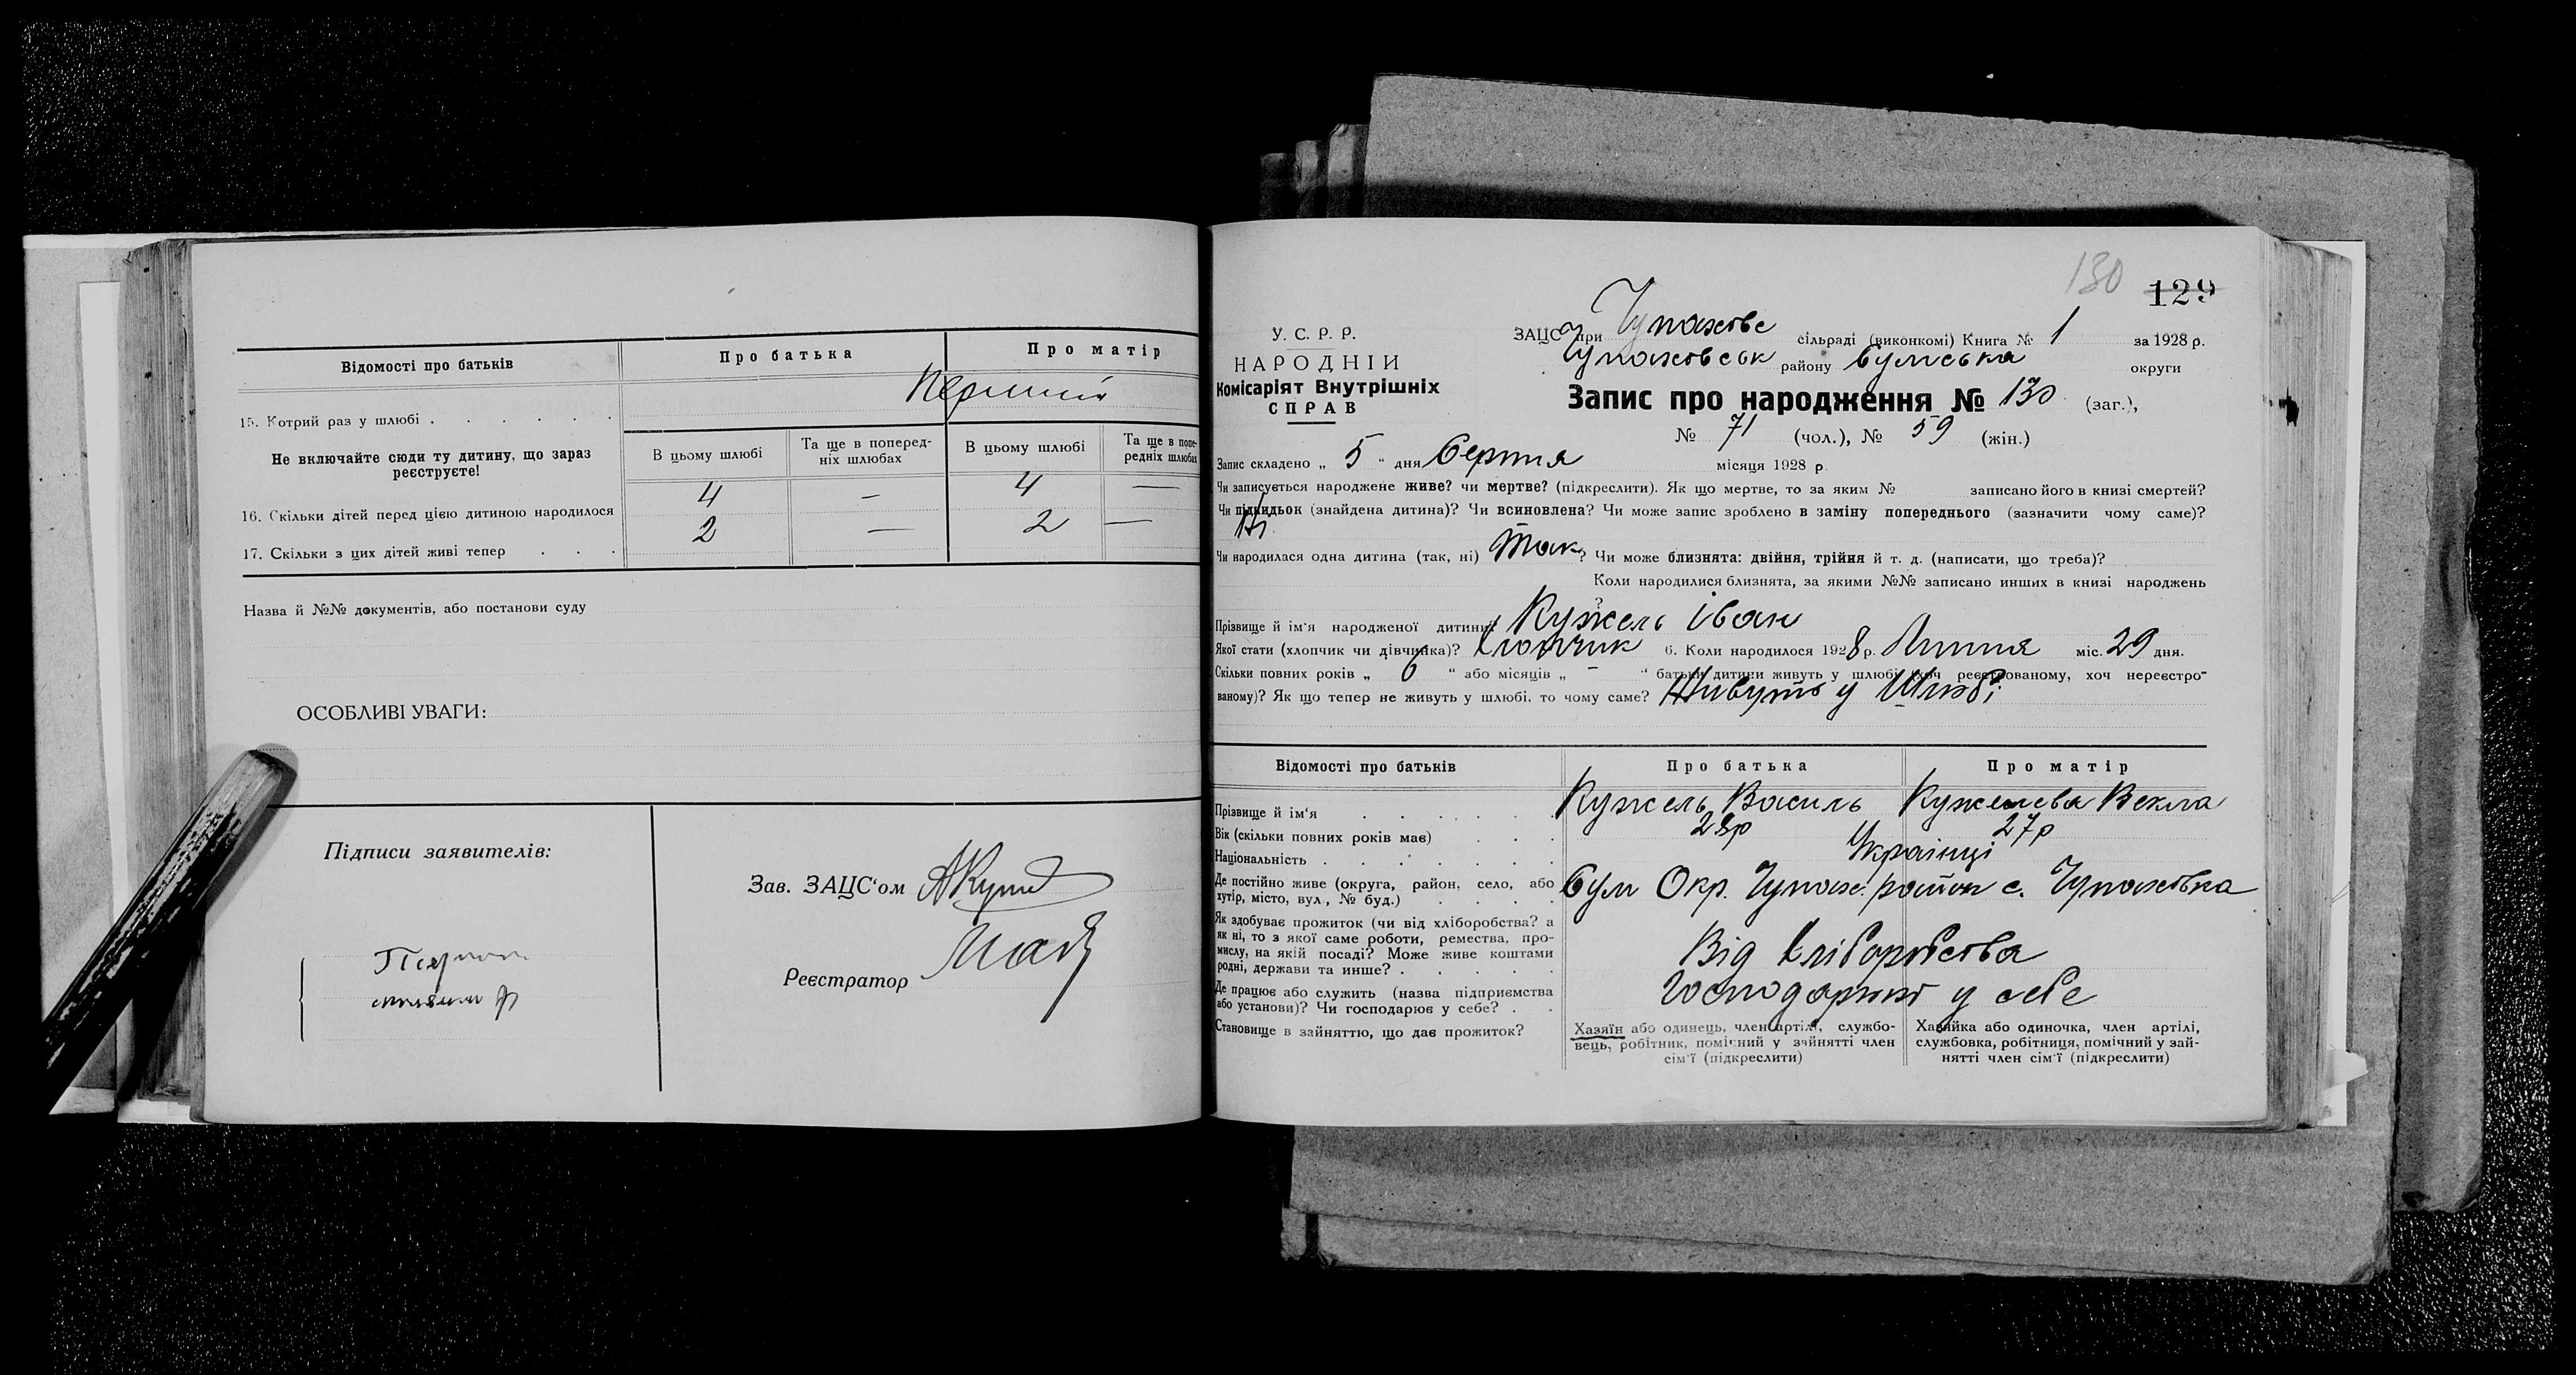 Відомості про батьків
Про батька
Про матір
15. Котрий раз у шлюбі . . . . . .
Перший
Не включайте сюди ту дитину, що зараз реєструєте!
В цьому шлюбі
Та ще в поперед-
ніх шлюбах
В цьому шлюбі
Та ще в попе-
редніх шлюбах
16. Скільки дітей перед цією дитиною народилося
4 — 4 —
17. Скільки з цих дітей живі тепер . . .
2 — 2 —
Назва й №№ документів, або постанови суду
ОСОБЛИВІ УВАГИ:
Підписи заявителів:
Зав. ЗАЦС'ом
Реєстратор
130
129
У. С. Р. Р.
НАРОДНІЙ
Комісаріят Внутрішніх
СПРАВ
ЗАЦС при Чупахове сільраді (виконкомі) Книга № 1 за 1928 р.
Чупаховськ району Сумська округи
Запис про народження № 130 (заг.),
№ 71 (чол.), № 59 (жін.)
Запис складено „ 5 “ дня Серпня місяця 1928 р.
Чи записується народжене живе? чи мертве? (підкреслити). Як що мертве, то за яким № записано його в книзі смертей?
Чи підкидьок (знайдена дитина)? Чи всиновлена? Чи може запис зроблено в заміну попереднього (зазначити чому саме)?
Ні
Чи народилася одна дитина (так, ні) Так? Чи може близнята: двійня, трійня й т. д. (написати, що треба)?
Коли народилися близнята, за якими №№ записано инших в книзі народжень
?
Прізвище й ім'я народженої дитини? Кужель Іван
Якої стати (хлопчик чи дівчинка)? Хлопчик 6. Коли народилося 1928 р. Липня міс. 29 дня.
Скільки повних років „ 6 “ або місяців „ – “ батьки дитини живуть у шлюбі (хоч реєстрованому, хоч нереєстро-
ваному)? Як що тепер не живуть у шлюбі, то чому саме? Живуть у Шлюбі
Відомості про батьків
Про батька
Про матір
Прізвище й ім'я . . . . . .
Кужель Василь
Кужелева Векла
Вік (скільки повних років має) . . .
28р
27р
Національність . . . . . . .
Українці
Де постійно живе (округа, район, село, або
хутір, місто, вул., № буд.) . . . .
Сум Окр. Чупах. район с. Чупаховка
Як здобуває прожиток (чи від хліборобства? а
як ні, то з якої саме роботи, ремества, про-
мислу, на якій посаді? Може живе коштами
родні, держави та инше? . . . . .
Від хліборобства
Де працює або служить (назва підприємства
або установи)? Чи господарює у себе? . .
Господарюют у себе
Становище в зайняттю, що дає прожиток?
Хазяїн або одинець, член артілі, службо-
вець, робітник, помічний у зайнятті член
сім'ї (підкреслити)
Хазяйка або одиночка, член артілі,
службовка, робітниця, помічний у зай-
нятті член сім'ї (підкреслити)